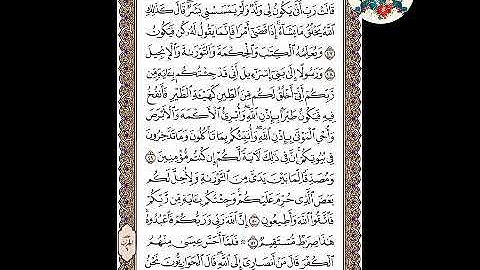 قَالَتْ رَبِّ أَنَّىٰ يَكُونُ لِي وَلَدٌ وَلَمْ يَمْسَسْنِي بَشَرٌ قَالَ كَذَٰلِكِ
اللَّهُ يَخْلُقُ مَا يَشَاءُ إِذَا قَضَىٰ أَمْرًا فَإِنَّمَا يَقُولُ لَهُ كُن فَيَكُونُ
٤٧ وَيُعَلِّمُهُ الْكِتَابَ وَالْحِكْمَةَ وَالتَّوْرَاةَ وَالْإِنجِيلَ
٤٨ وَرَسُولًا إِلَىٰ بَنِي إِسْرَائِيلَ أَنِّي قَدْ جِئْتُكُم بِآيَةٍ مِّن
رَّبِّكُمْ أَنِّي أَخْلُقُ لَكُم مِّنَ الطِّينِ كَهَيْئَةِ الطَّيْرِ فَأَنفُخُ
فِيهِ فَيَكُونُ طَيْرًا بِإِذْنِ اللَّهِ وَأُبْرِئُ الْأَكْمَهَ وَالْأَبْرَصَ
وَأُحْيِي الْمَوْتَىٰ بِإِذْنِ اللَّهِ وَأُنَبِّئُكُم بِمَا تَأْكُلُونَ وَمَا تَدَّخِرُونَ
فِي بُيُوتِكُمْ إِنَّ فِي ذَٰلِكَ لَآيَةً لَّكُمْ إِن كُنتُم مُّؤْمِنِينَ ٤٩
وَمُصَدِّقًا لِّمَا بَيْنَ يَدَيَّ مِنَ التَّوْرَاةِ وَلِأُحِلَّ لَكُم
بَعْضَ الَّذِي حُرِّمَ عَلَيْكُمْ وَجِئْتُكُم بِآيَةٍ مِّن رَّبِّكُمْ
فَاتَّقُوا اللَّهَ وَأَطِيعُونِ ٥٠ إِنَّ اللَّهَ رَبِّي وَرَبُّكُمْ فَاعْبُدُوهُ
هَٰذَا صِرَاطٌ مُّسْتَقِيمٌ ٥١ ۞ فَلَمَّا أَحَسَّ عِيسَىٰ مِنْهُمُ
الْكُفْرَ قَالَ مَنْ أَنصَارِي إِلَى اللَّهِ قَالَ الْحَوَارِيُّونَ نَحْنُ